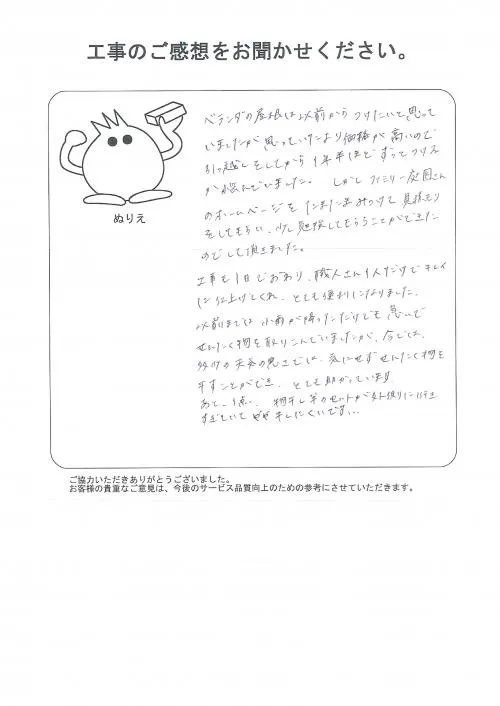 工事のご感想をお聞かせください。
ベランダの屋根は以前からつけたいと思って
いましたが思っていたより価格が高いので
引っ越しをしてから1年半ほどずっとつけるか
が悩んでいました。 しかしファミリー庭園さん
のホームページをたまたまみつけて見積もり
をしてもらい、少し勉強してもらうことができた
のでして頂きました。
工事も1日でおわり、職人さん1人だけでキレイ
に仕上げてくれ、とても便利になりました。
以前までは小雨が降っただけでも急いで
せんたく物を取りこんでいましたが、今では、
多少の天気の悪さでは、気にせずせんたく物を
干すことができ、とても助かっています
あと、1点、物干し竿のセットが外側に行き
すぎていてやや干しにくいです...
ぬりえ
ご協力いただきありがとうございました。
お客様の貴重なご意見は、今後のサービス品質向上のための参考にさせていただきます。